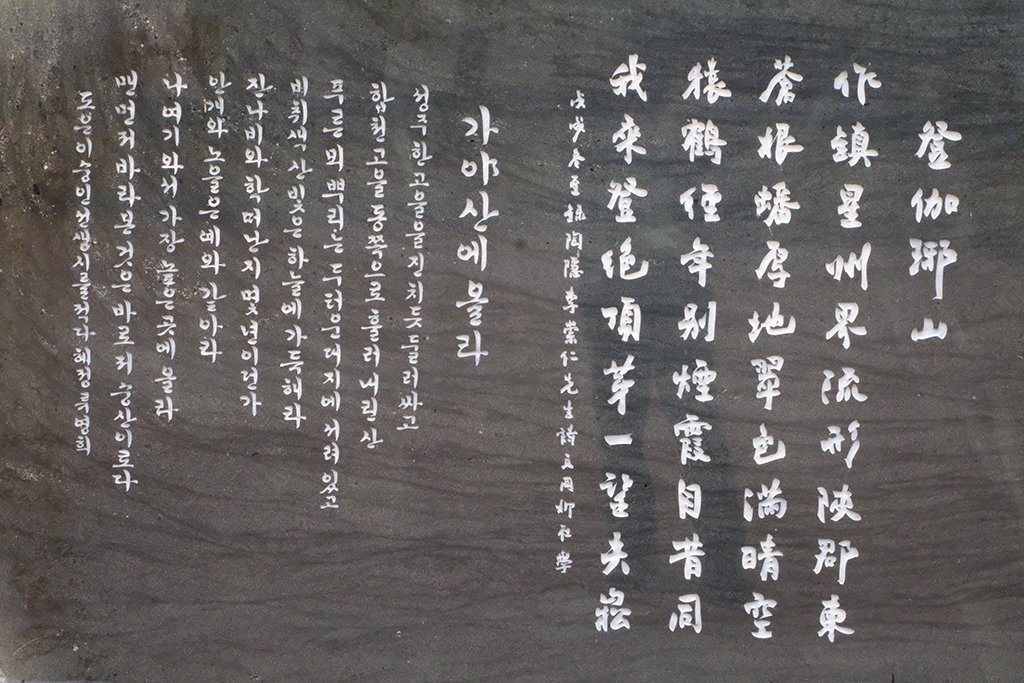 登伽倻山
作鎮星州界流形陜郡東
蒼根蟠厚地翠色滿晴空
猿鶴俓年别煙霞自昔同
我來登絶頂苐一望夫崧
冬至錄陶隱李崇仁先生詩文岡柳社學
가야산에 올라
성주 한 고을을 진치듯 둘러싸고
합천고을 동쪽으로 흘러내린 산
푸른 뫼 뿌리는 두터운 대지에 서려있고
비취색 산빛은 하늘에 가득해라
잔나비와 학 떠난지 몇년이런가
안개와 노을은 예와 같아라
나 여기 와서 가장 높은곳에 올라
맨먼저 바라본 것은 바로 저 숭산이로다
도은이숭인선생시를적다 혜정류명희